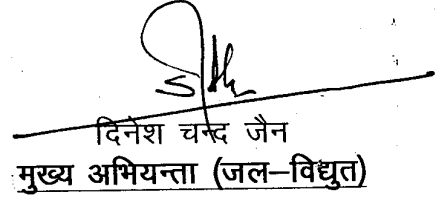 दिनेश चन्द जैन
मुख्य अभियन्ता (जल–विद्युत)